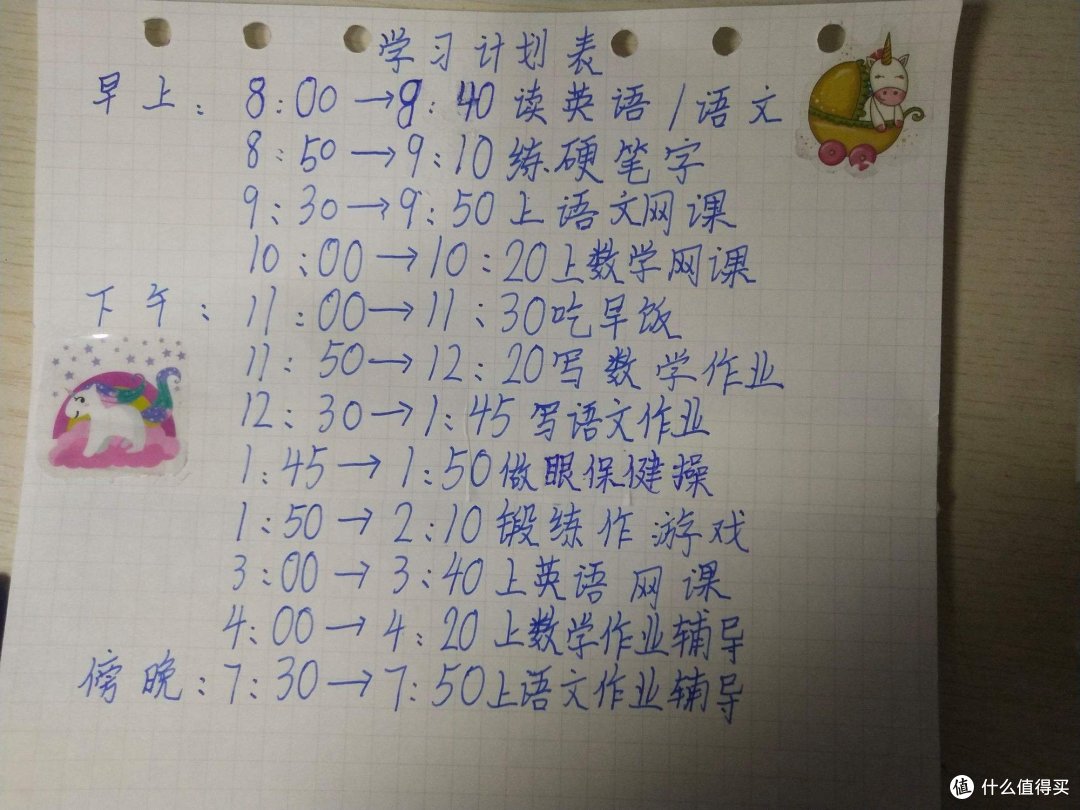 学习计划表
早上：8:00→8:40读英语/语文
8:50→9:10练硬笔字
9:30→9:50上语文网课
10:00→10:20上数学网课
下午：11:00→11:30吃早饭
11:50→12:20写数学作业
12:30→1:45写语文作业
1:45→1:50做眼保健操
1:50→2:10锻练作游戏
3:00→3:40上英语网课
4:00→4:20上数学作业辅导
傍晚：7:30→7:50上语文作业辅导
值 什么值得买